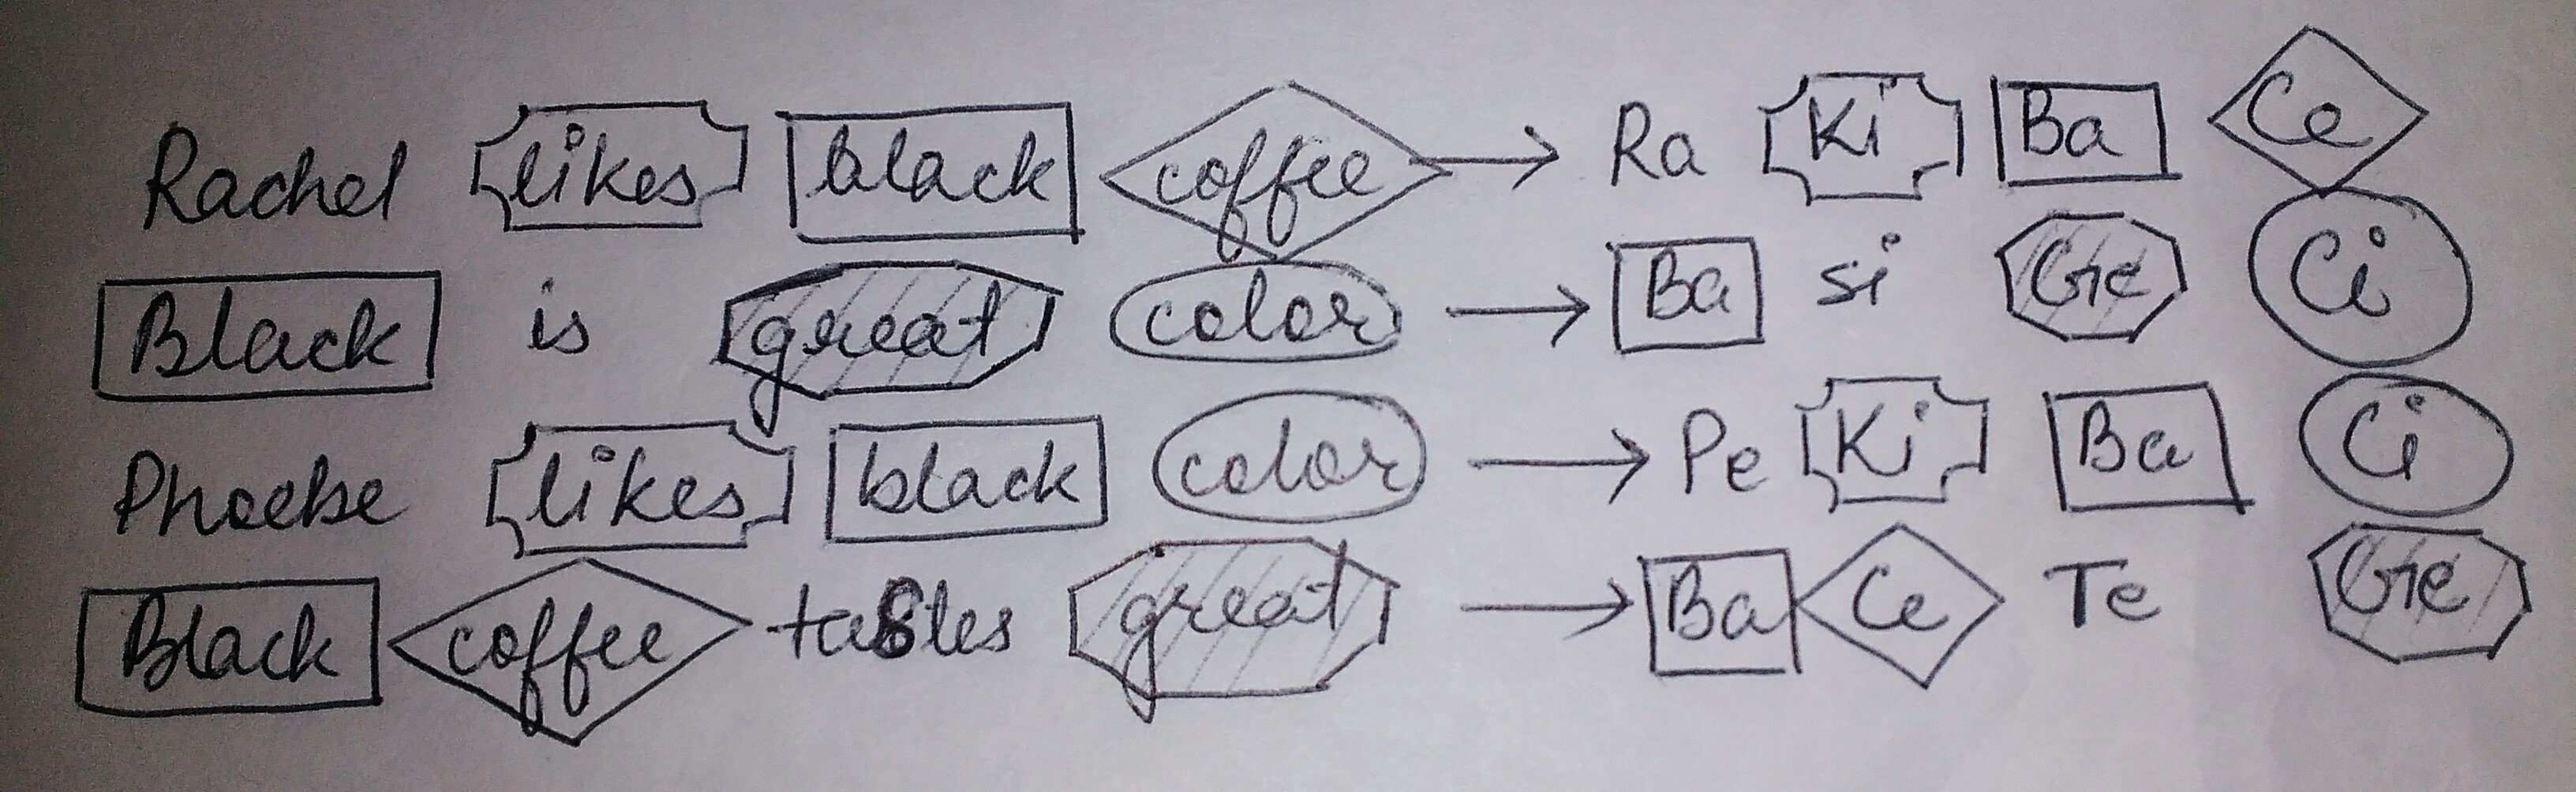 Rachel likes black coffee → Ra Ki Ba Ce
Black is great color → Ba si Ge Ci
Phoebe likes black color → Pe Ki Ba Ci
Black coffee tastes great → Ba Ce Te Ge